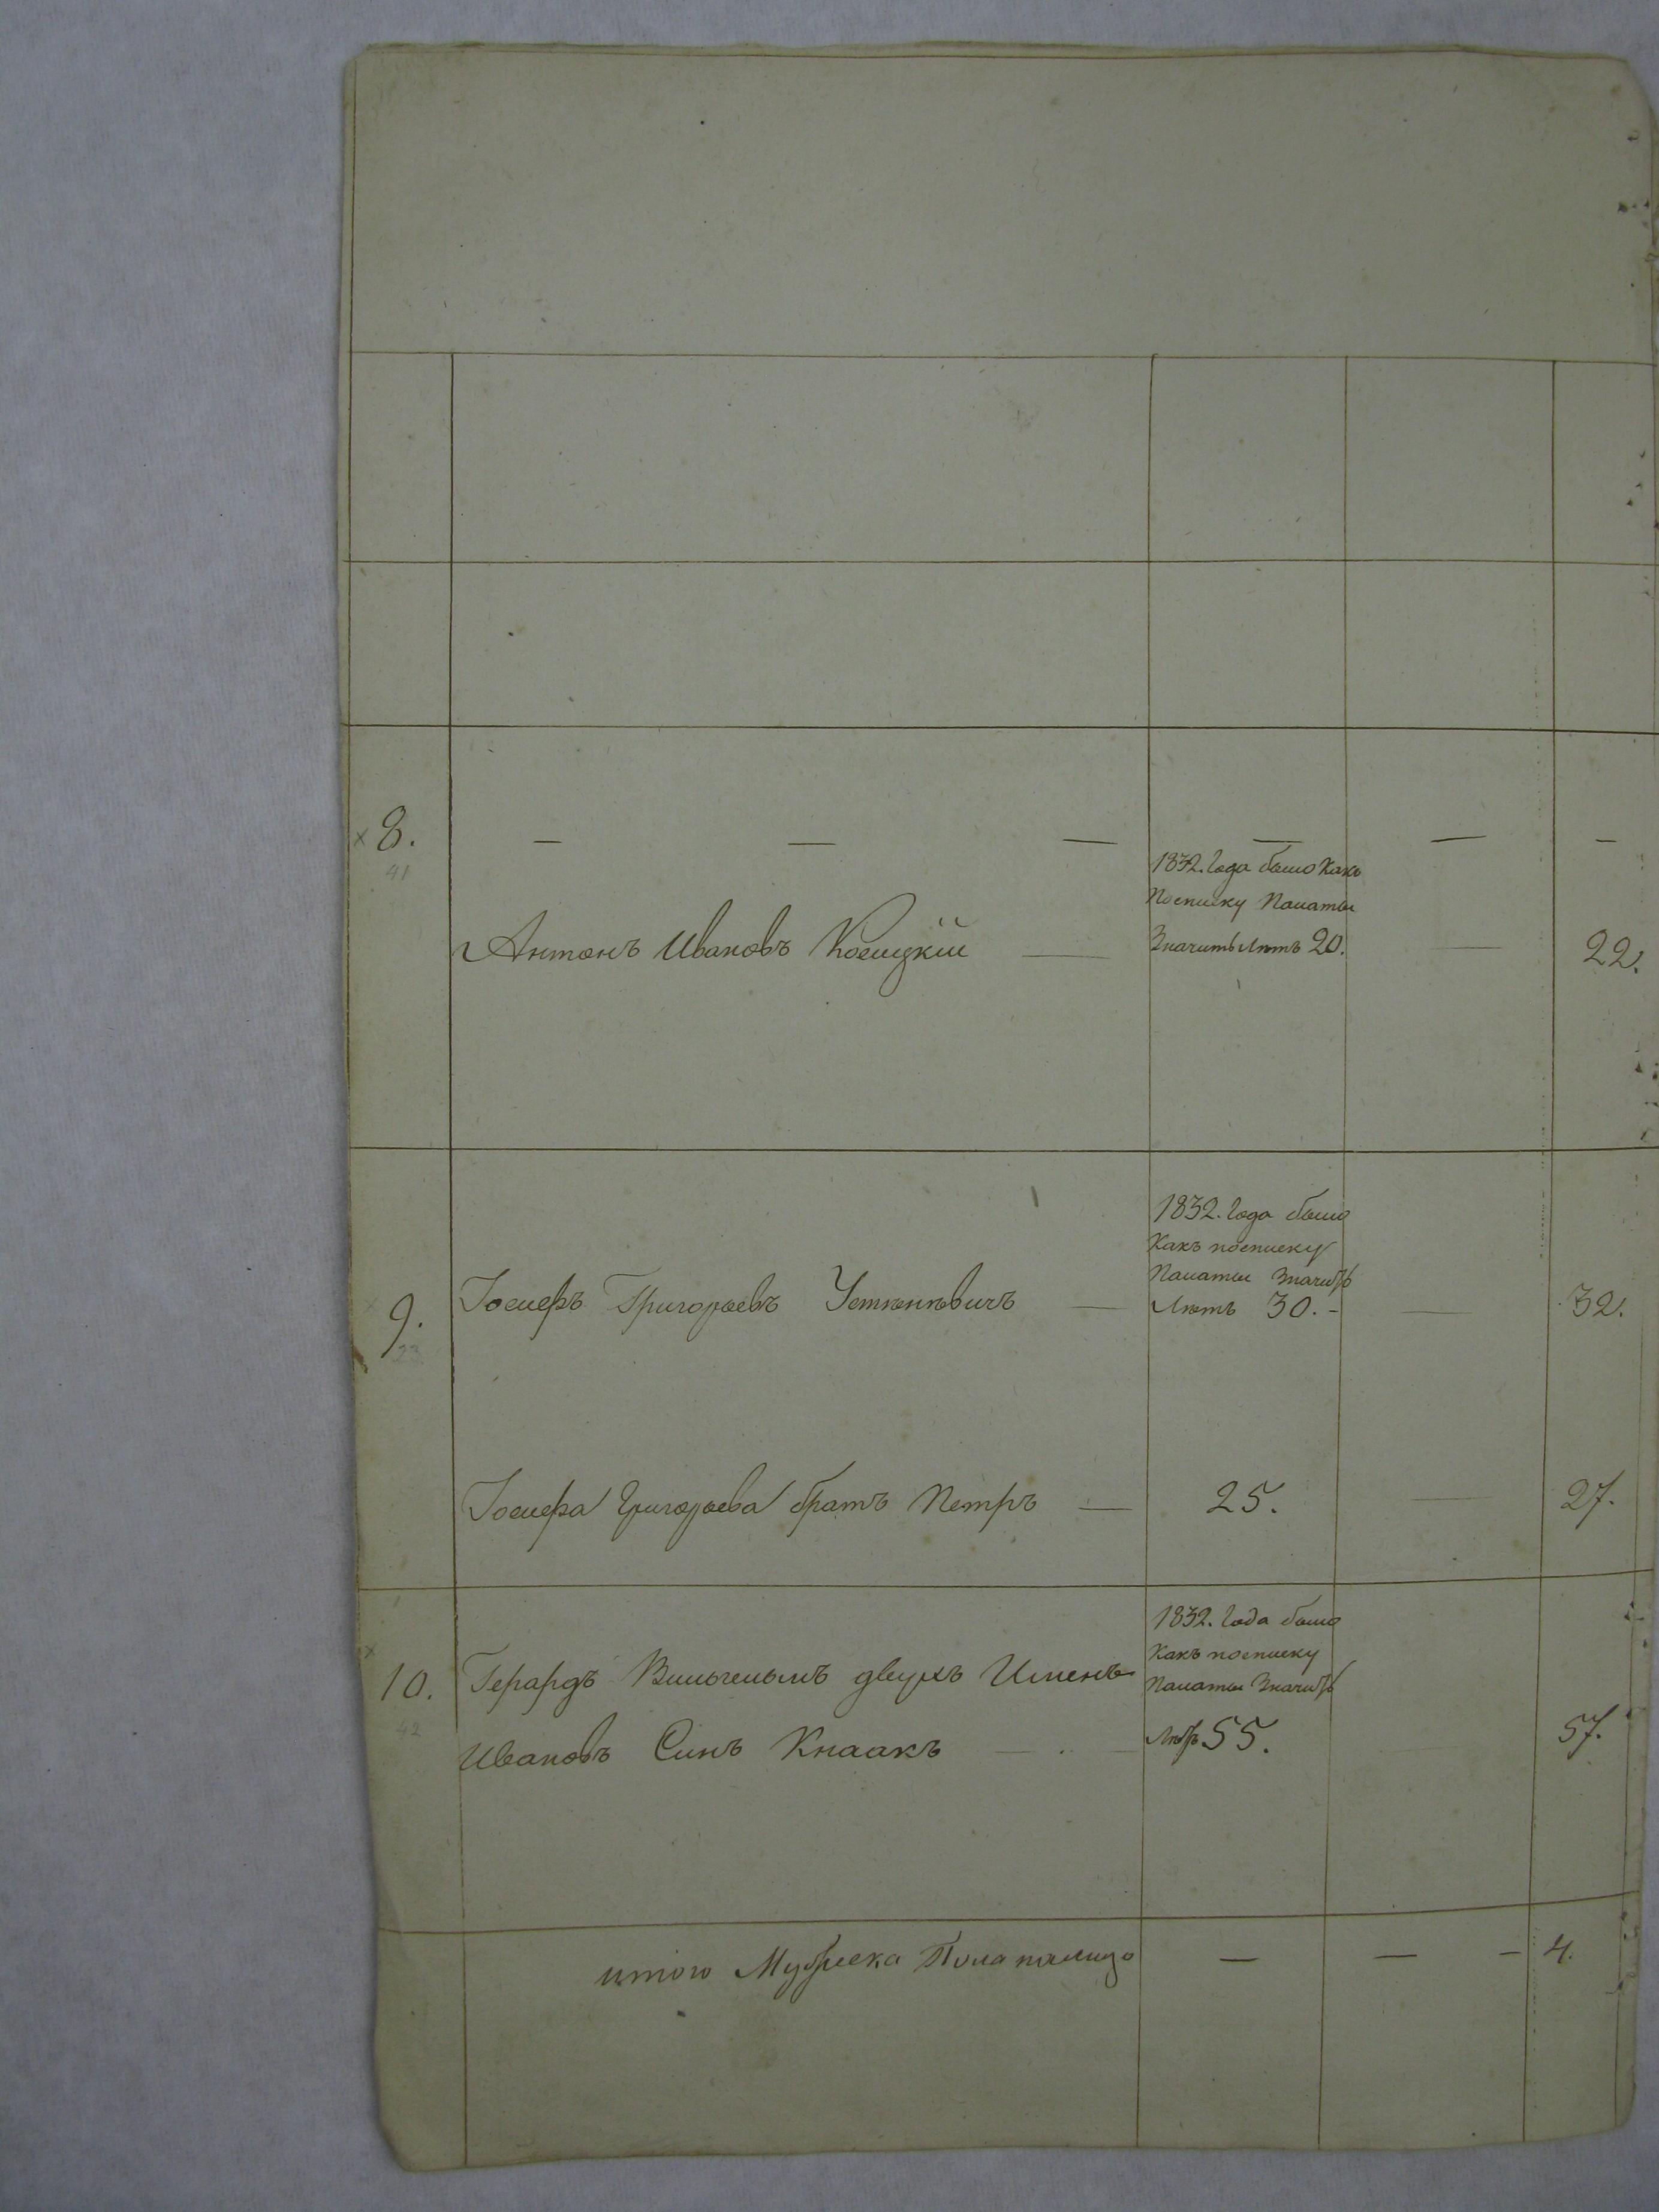 8. — — — — — —
41
1832. Года было какъ
по списку Палаты
Антонъ Ивановъ — Значитъ лѣтъ 20. — 22.
1832. Года было
какъ по списку
Палаты Значитъ
9. Іосифъ Григорьевъ — Лѣтъ 30. — — 32.
23
Іосифа Григорьева братъ Петръ — 25. — 27.
1832. Года было
какъ по списку
10. Герардъ Вильгельмъ двухъ Именъ Палаты Значитъ
42
Ивановъ Синъ Кнаакъ — Лѣтъ 55. 57.
итого Мужеска Пола налицо — — — 4.